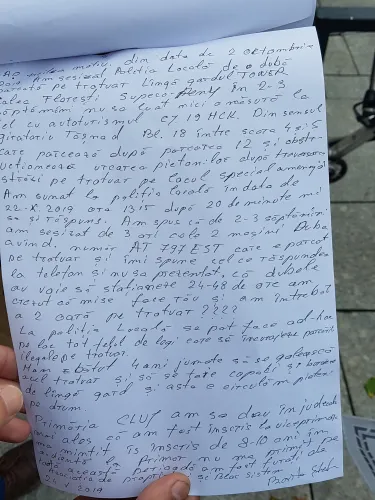 din data de 2 octombrie
Am sesizat Poliția Locală de o dubă
parcată pe trotuar lîngă gardul TOWER
Calea Florești în 2-3
săptămîni nu sa luat nici o măsură la
fel cu autoturismul CJ 19 HCK. Din sensul
Giratoriu Tășnad Bl. 18 între scara 4 și 5
care parcează după parcarea 12 și obstr-
ucționează urcarea pietonilor după traversarea
străzii pe trotuar pe locul special amenajat
Am sunat la poliția locală în data de
22-X-2019 ora 13 15 după 20 de minute mi
sa și răspuns. Am spus că de 2-3 săptămîni
am sesizat de 3 ori cele 2 mașini Duba
avînd număr AT 797 EST care e parcat
pe trotuar și îmi spune cel ce răspundea
la telefon și nu sa prezentat, că dubele
au voie să staționeze 24-48 de ore am
crezut că mise face rău și am întrebat
a 2 oară pe trotuar ????
La poliția Locală se pot face ad-hoc
pe loc tot felul de legi care să încurajeze parcări
ilegale pe trotuar.
4 ani jumate să se golească
acel trotuar și să se facă
de lîngă gard și asta e circulăm pietonii
pe drum.
Primăria CLUJ am so dau în judecată
mai ales că am fost înscris la viceprimar
mințit îs înscris de 8-10 ani în
audiență la Primar nu ma primit pe
toată această perioadă am fost furați de
asociația de și
X 2019